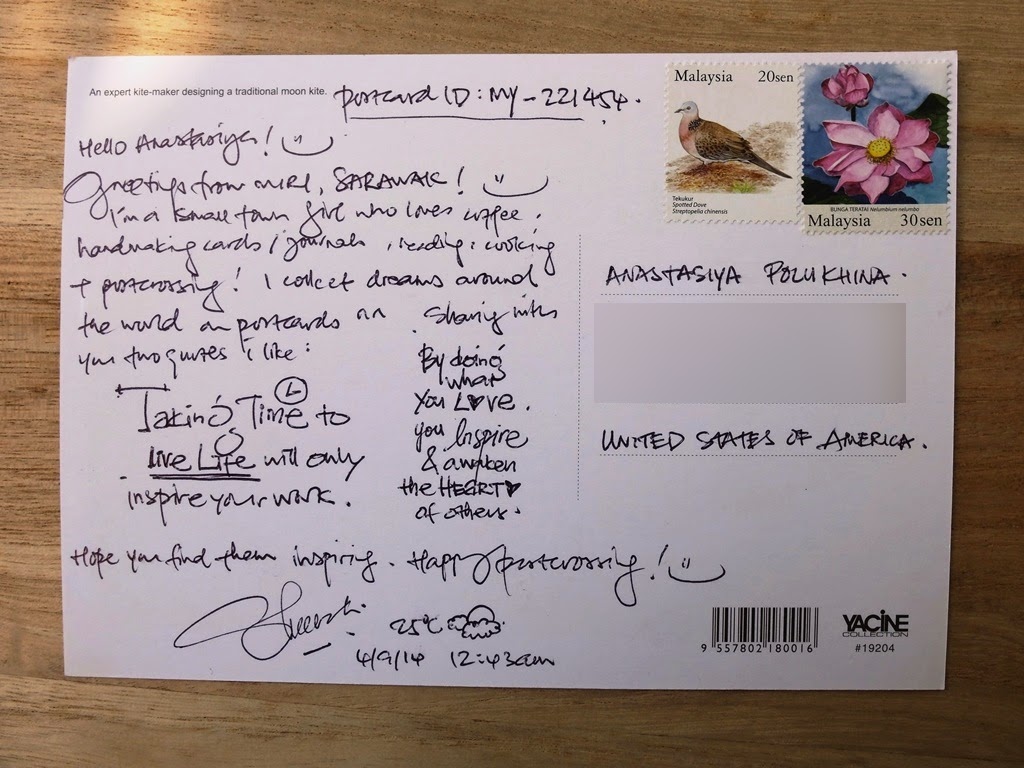 An expert kite-maker designing a traditional moon kite.
postcard ID: MY-221454.
Malaysia 20sen
Tekukur
Spotted Dove
Streptopelia chinensis
BUNGA TERATAI Nelumbium nelumbo
Malaysia 30sen
Hello Anastasiya!
Greetings from MIRI, SARAWAK!
I'm a small town girl who loves coffee,
handmaking cards / journals, reading, cooking
+ postcrossing! I collect dreams around
the world on postcards. Sharing with
you two quotes i like:
Taking Time to
live Life will only
inspire your work.
By doing
what
You L♥ve.
you Inspire
& awaken
the HEART♥
of others.
Hope you find them inspiring. Happy postcrossing!
25°C
4/9/14 12:43am
ANASTASIYA POLUKHINA.
UNITED STATES OF AMERICA.
9 557802 180016
YACINE
COLLECTION
#19204